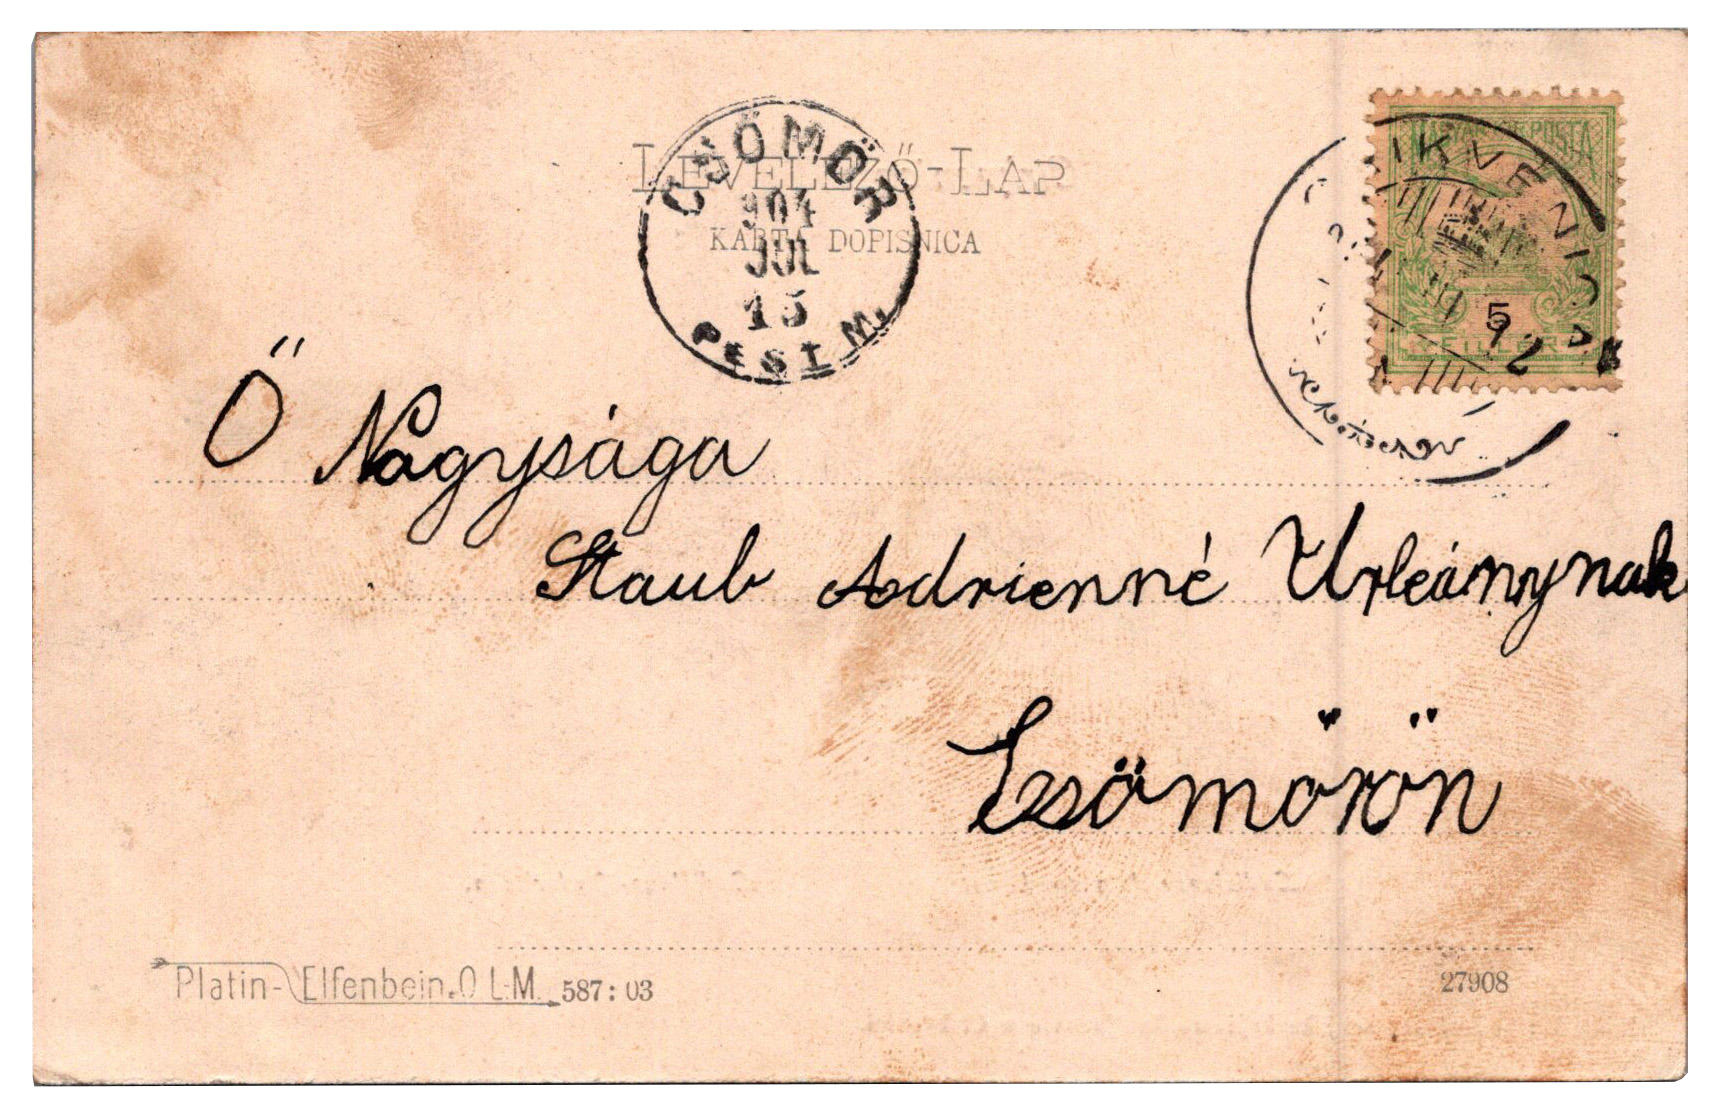 LEVELEZŐ-LAP
KARTA DOPISNICA
CSÖMÖR
904
JUL
15
PEST M.
MAGYAR KIR. POSTA
5
FILLÉR
CIRKVENICA
Ő Nagysága
Staub Adrienné Urleánynak
Csömörön
Platin-Elfenbein.O L-M. 587:03
27908